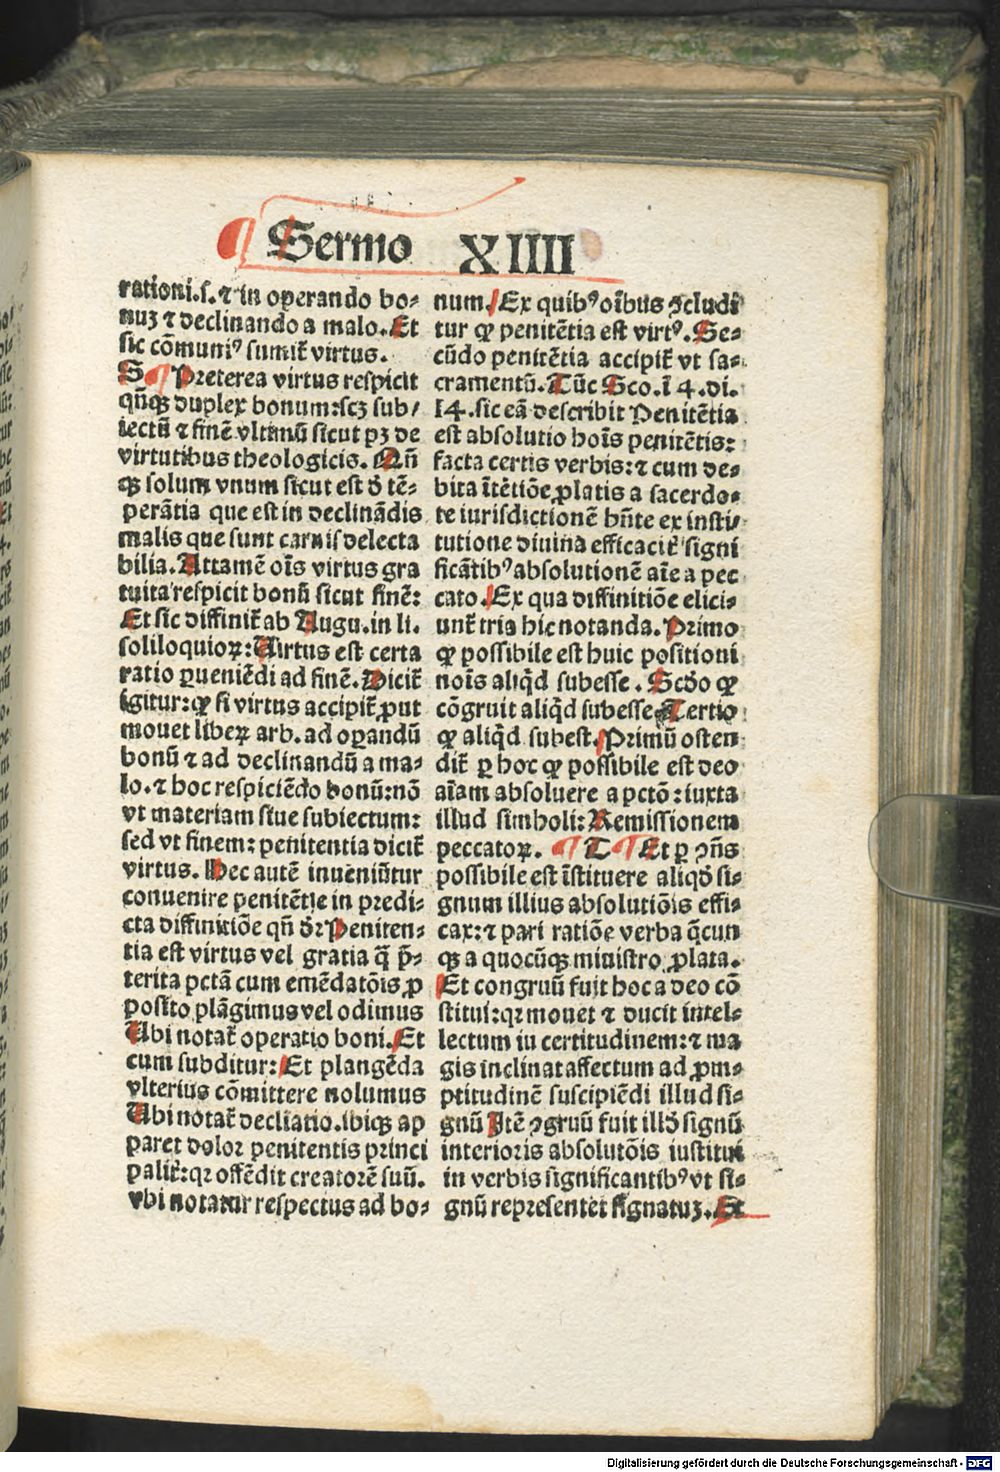 Sermo XIIII
rationi.s. ⁊ in operando bo-
nuꝫ ⁊ declinando a malo. Et
sic cōmuniꝰ sumit̄ virtus.
S ¶ Preterea virtus respicit
qn̄qꝫ duplex bonum: scꝫ sub/
iectū ⁊ finē vltimū sicut pꝫ de
virtutibus theologicis. Qn̄
qꝫ solum vnum sicut est đ tē-
perātia que est in declinādis
malis que sunt carnis delecta
bilia. Attamē oīs virtus gra
tuita respicit bonū sicut finē:
Et sic diffinit̄ ab Augu. in li.
soliloquioꝝ: Virtus est certa
ratio ꝑueniēdi ad finē. Dicit̄
igitur: ꝙ si virtus accipit̄ ꝓut
mouet liberꝝ arb. ad oꝑandū
bonū ⁊ ad declinandū a ma-
lo. ⁊ hoc respiciēdo bonū: nō
vt materiam siue subiectum:
sed vt finem: penitentia dicit̄
virtus. Hec autē inueniūtur
conuenire penitētie in predi-
cta diffinitiōe qn̄ đꝛ Peniten-
tia est virtus vel gratia q̄ p̄-
terita pctā cum emēdatōis ꝓ
posito plāgimus vel odimus
Ubi notat̄ operatio boni. Et
cum subditur: Et plangēda
vlterius cōmittere nolumus
Ubi notat̄ decliatio. ibiqꝫ ap
paret dolor penitentis princi
palit̄: qꝛ offēdit creatorē suū.
vbi notatur respectus ad bo-
num. Ex quibꝰ oībus ꝯcludi
tur ꝙ penitētia est virtꝰ. Se-
cūdo penitētia accipit̄ vt sa-
cramentū. Tūc Sco. ī 4. di.
14. sic eā describit Penitētia
est absolutio hoīs penitētis:
facta certis verbis: ⁊ cum de-
bita ītētiōe ꝓlatis a sacerdo-
te iurisdictionē hn̄te ex insti-
tutione diuina efficacit̄ signi
ficātibꝰ absolutionē aīe a pec
cato. Ex qua diffinitiōe elici-
unt̄ tria hic notanda. Primo
ꝙ possibile est huic positioni
noīs aliq̄d subesse. Scđo ꝙ
cōgruit aliq̄d subesse Tertio
ꝙ aliq̄d subest. Primū osten
dit̄ ꝑ hoc ꝙ possibile est deo
aīam absoluere a pctō: iuxta
illud simboli: Remissionem
peccatoꝝ. ¶ T ¶ Et ꝑ ꝯn̄s
possibile est īstituere aliqđ si-
gnum illius absolutiōis effi-
cax: ⁊ pari ratiōe verba q̄cun
qꝫ a quocūqꝫ ministro ꝓlata.
Et congruū fuit hoc a deo cō
stitui: qꝛ mouet ⁊ ducit intel-
lectum in certitudinem: ⁊ ma
gis inclinat affectum ad ꝓm-
ptitudinē suscipiēdi illud si-
gnū Itē ꝯgruū fuit illđ signū
interioris absolutōis institui
in verbis significantibꝰ vt si-
gnū representet signatuꝫ. Et
Digitalisierung gefördert durch die Deutsche Forschungsgemeinschaft - DFG